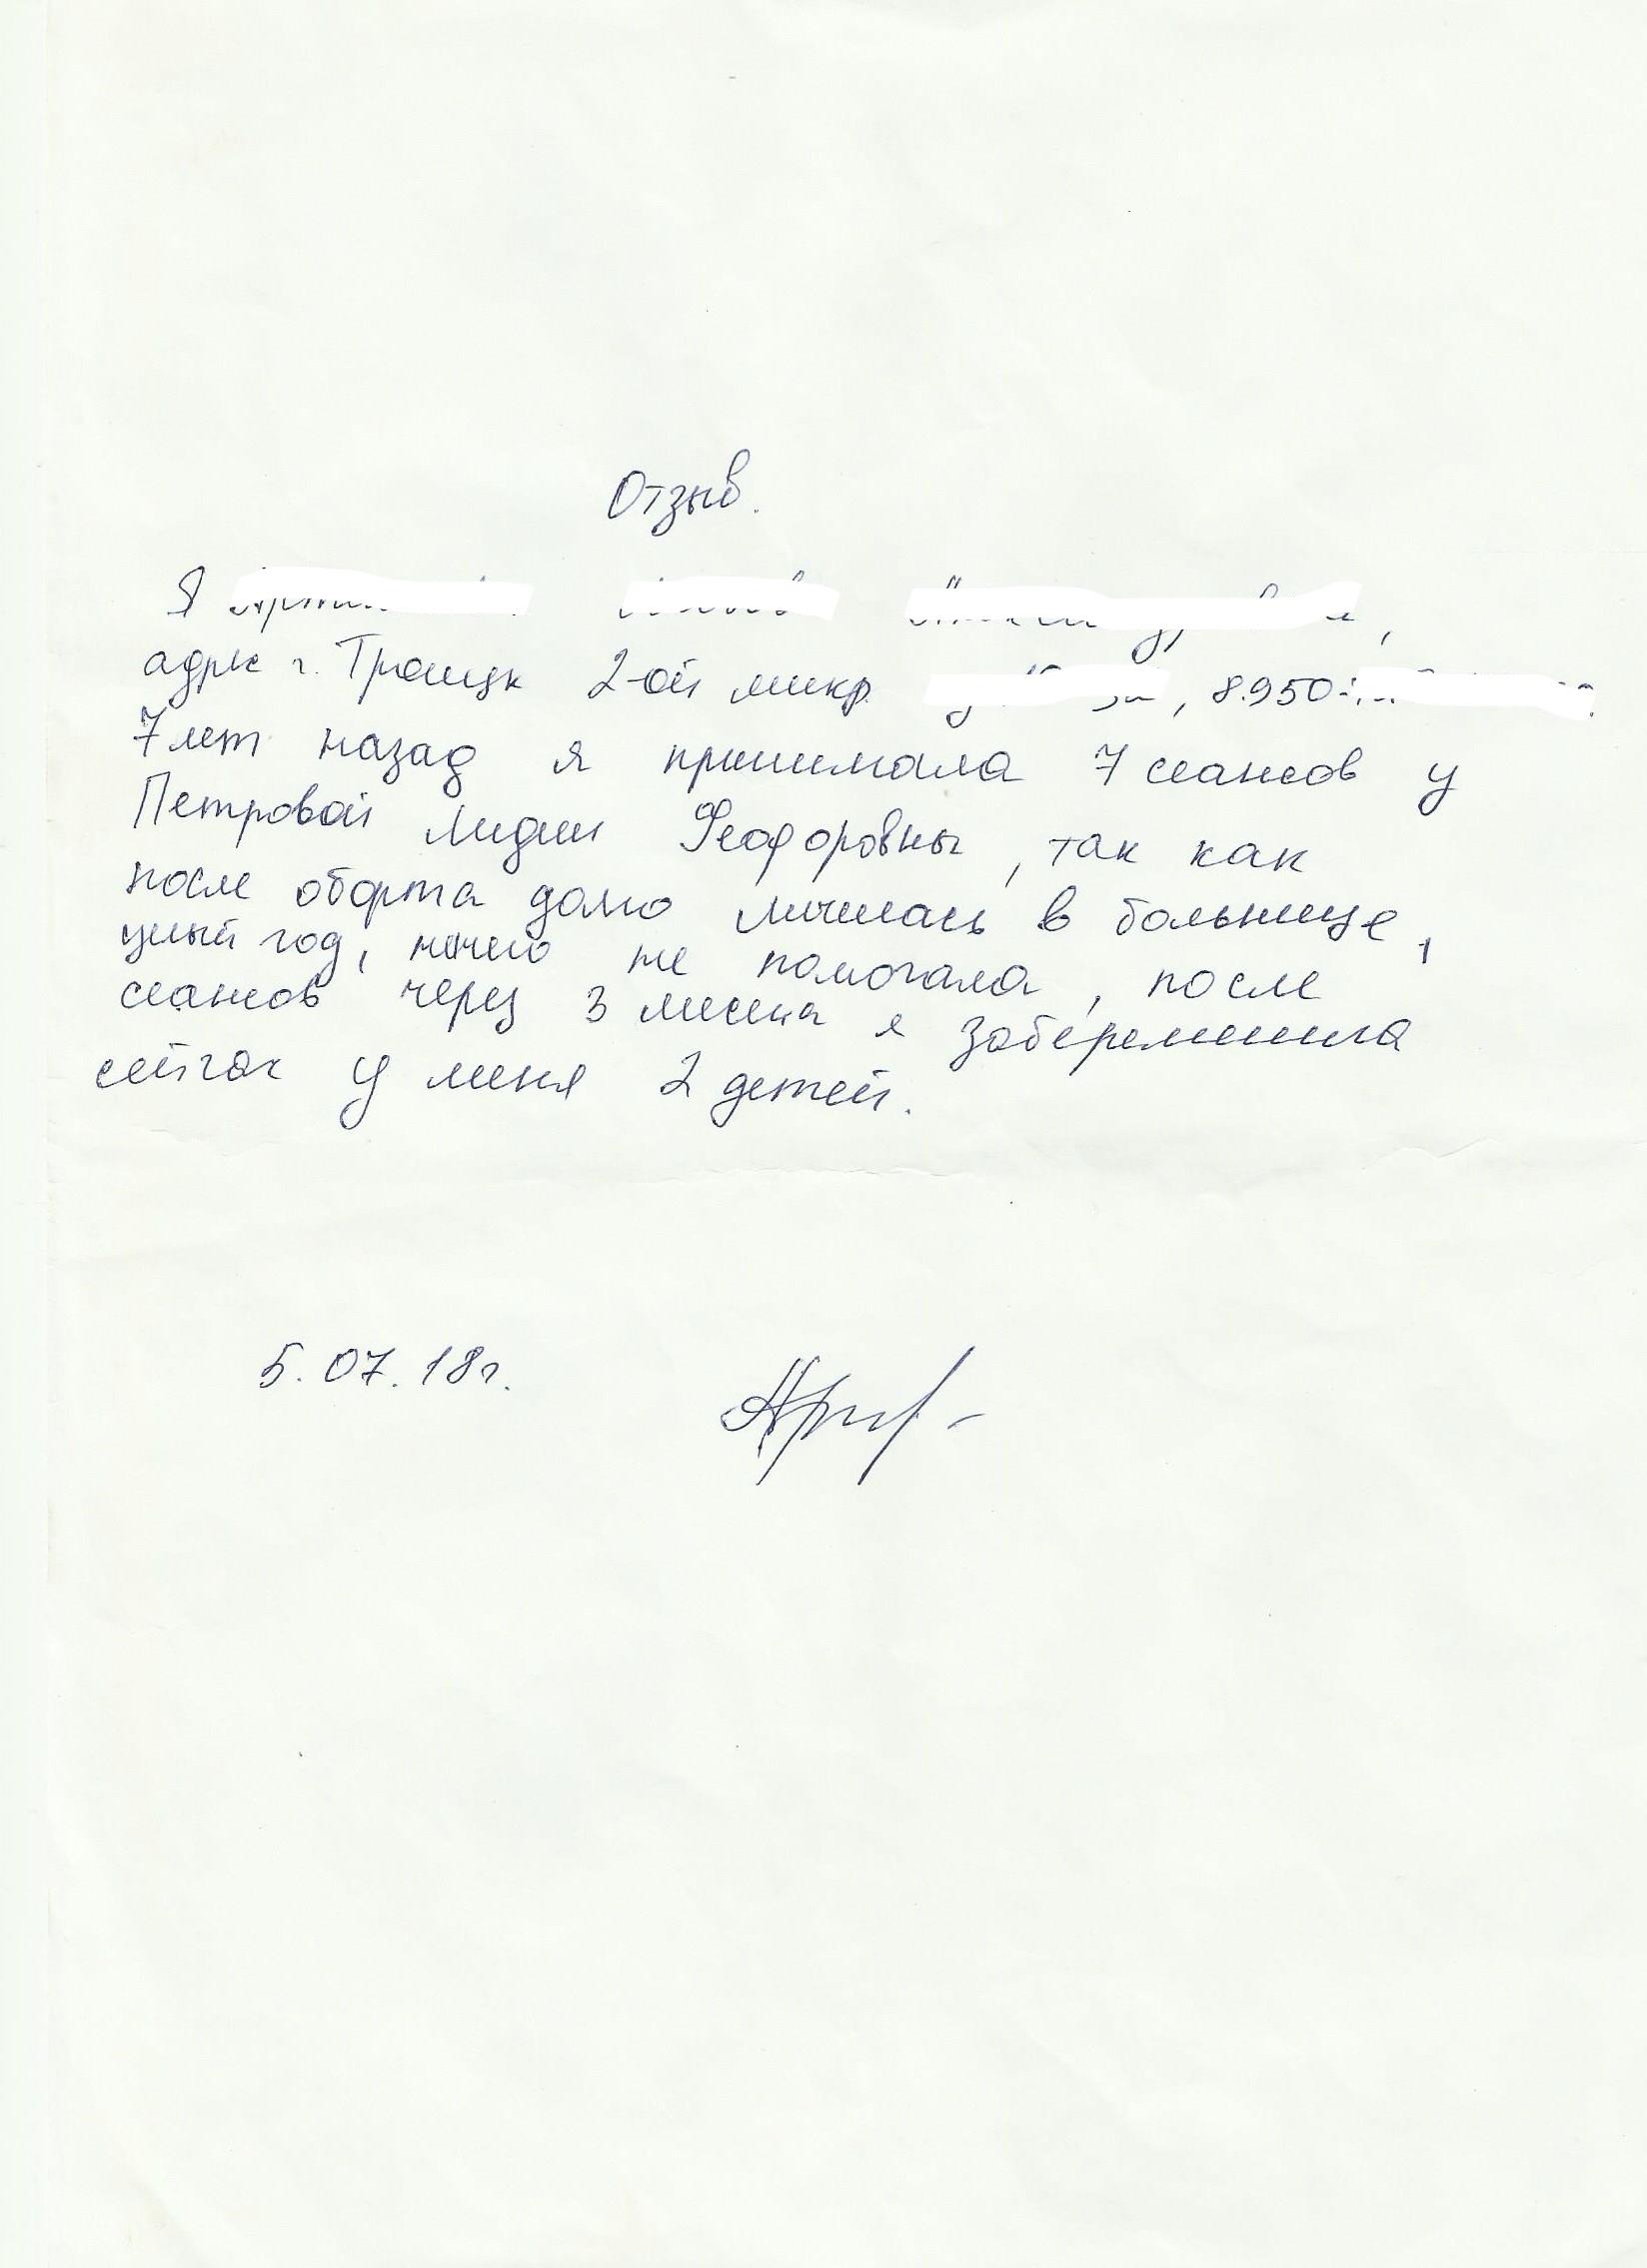 Отзыв.
Я
адрес г. Троицк 2-ой микр. , 8.950
7 лет назад я принимала 7 сеансов у
Петровой Лидии Феодоровны, так как
после оборта долго личилась в больнице,
целый год, ничего не помогала, после
сеансов через 3 месеца я забеременила
сейчас у меня 2 детей.
5.07.18г.